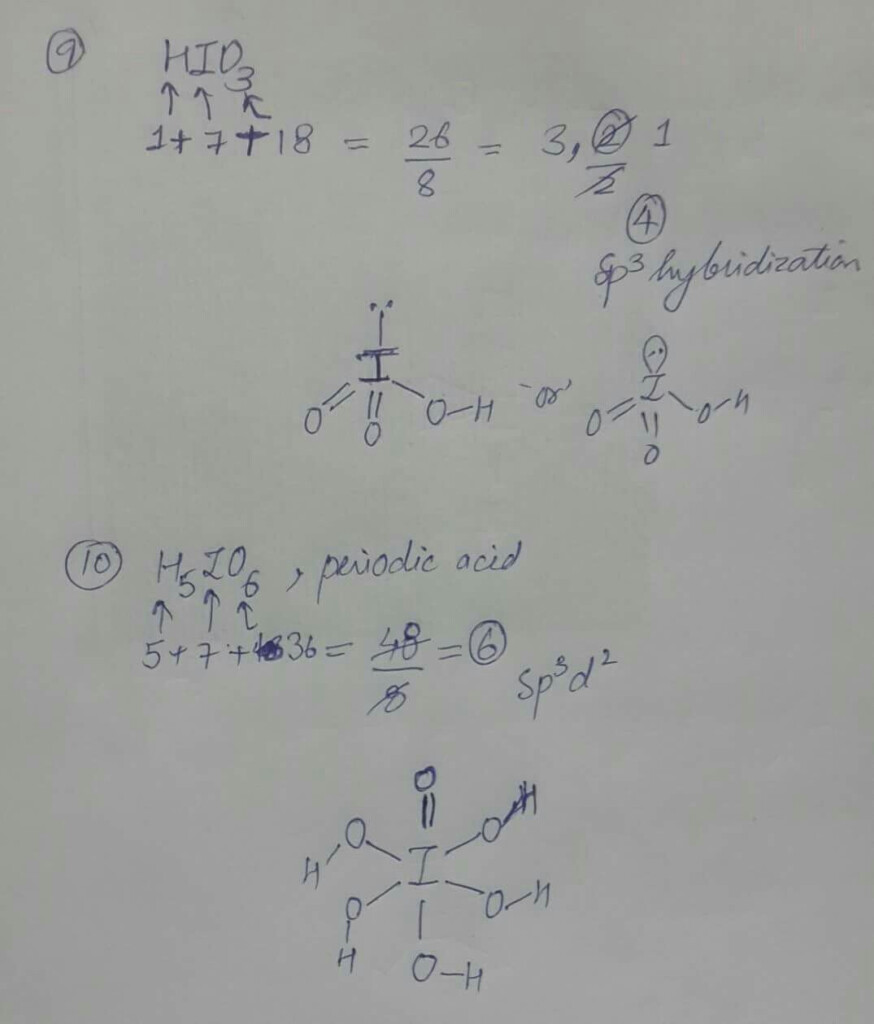 ⑨ HIO₃
↑ ↑ ↖
1 + 7 + 18 = 26/8 = 3, 2/2 1
④
Sp³ hybridization
..
I
O O O-H "or" O I O-H
O
⑩ H₅IO₆, periodic acid
↑ ↑ ↖
5 + 7 + 36 = 48/8 = ⑥
Sp³d²
O
O O-H
H I
O O-H
H O-H